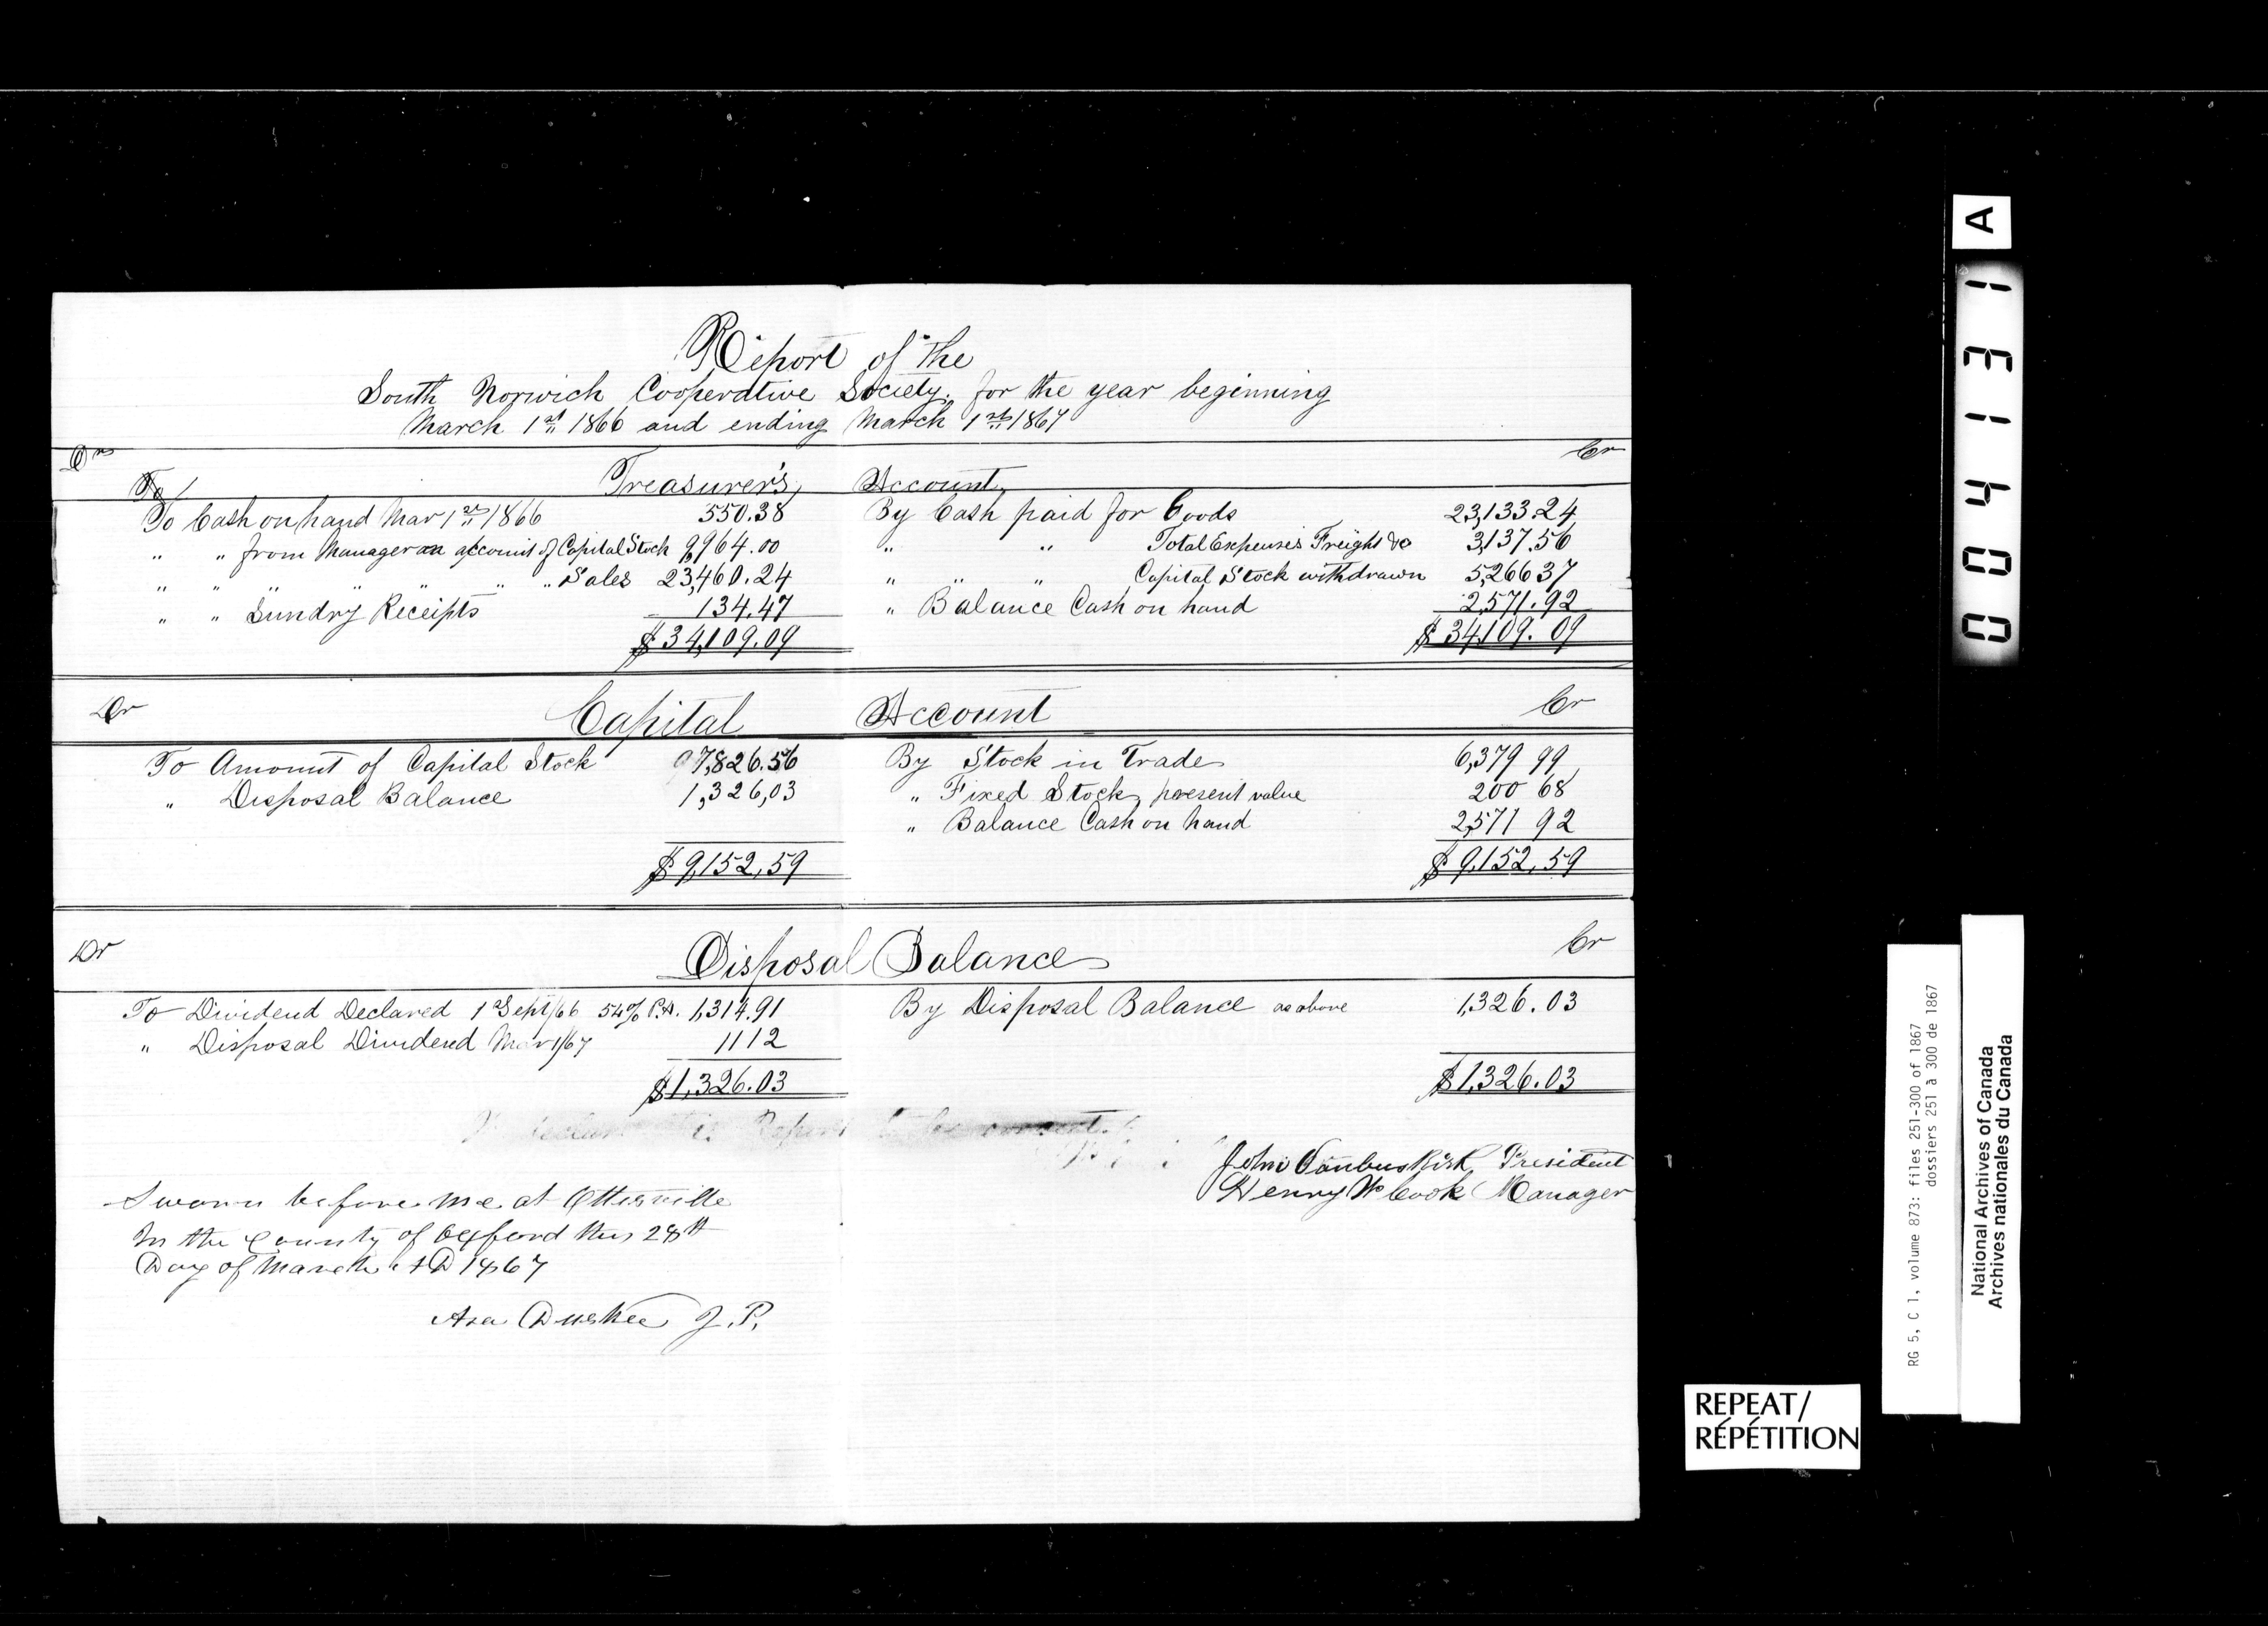 Report of the
South Norwich Cooperative Society, for the year beginning
March 1st 1866 and ending March 1st 1867
Dr Cr
To Treasurer's Account
To Cash on hand Mar 1st 1866 550.38 By Cash paid for Goods 23,133.24
" " from Manager on account of Capital Stock 9,964.00 " " Total Expenses Freight &c 3,137.56
" " " " " " Sales 23,460.24 " " " Capital Stock withdrawn 5,266 37
" " Sundry Receipts 134.47 " Balance Cash on hand 2,571.92
$ 34,109.09 $ 34,109.09
Dr Capital Account Cr
To Amount of Capital Stock 7,826.56 By Stock in Trade 6,379 99
" Disposal Balance 1,326,03 " Fixed Stock, present value 200 68
" Balance Cash on hand 2,571 92
$ 9,152,59 $ 9,152,59
Dr Disposal Balance Cr
To Dividend Declared 1st Sept/66 P.A. 1,314.91 By Disposal Balance as above 1,326.03
" Disposal Dividend Mar 1/67 11 12
$1,326.03 $1,326.03
Report to be correct
John Vanbuskirk President
Henry W Cook Manager
Sworn before me at Otterville
In the County of Oxford this 28th
Day of March AD 1867
Asa Durkee J.P.
0 0 4 1 3 1 A
RG 5, C 1, volume 873: files 251-300 of 1867
dossiers 251 à 300 de 1867
National Archives of Canada
Archives nationales du Canada
REPEAT/
RÉPÉTITION